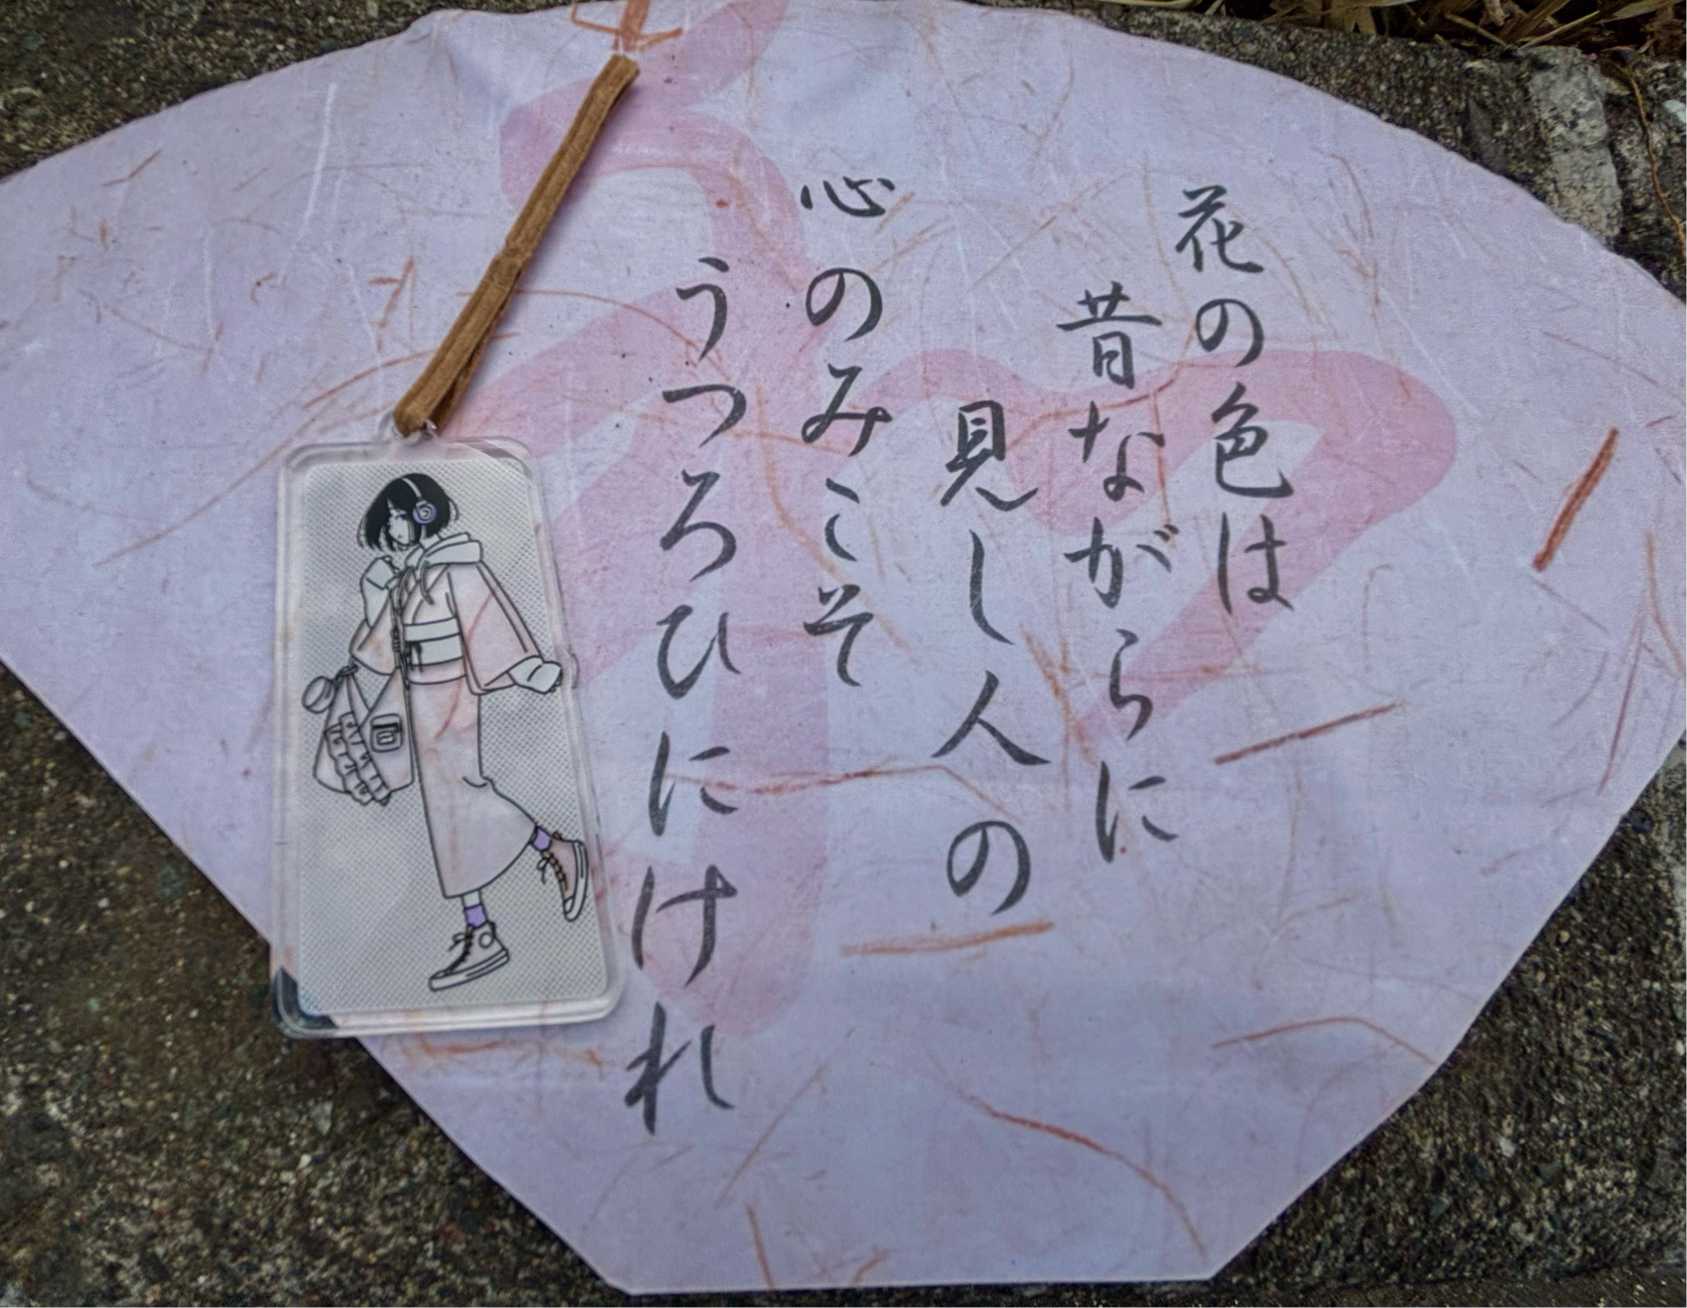 花の色は
昔ながらに
見し人の
心のみこそ
うつろひにけれ